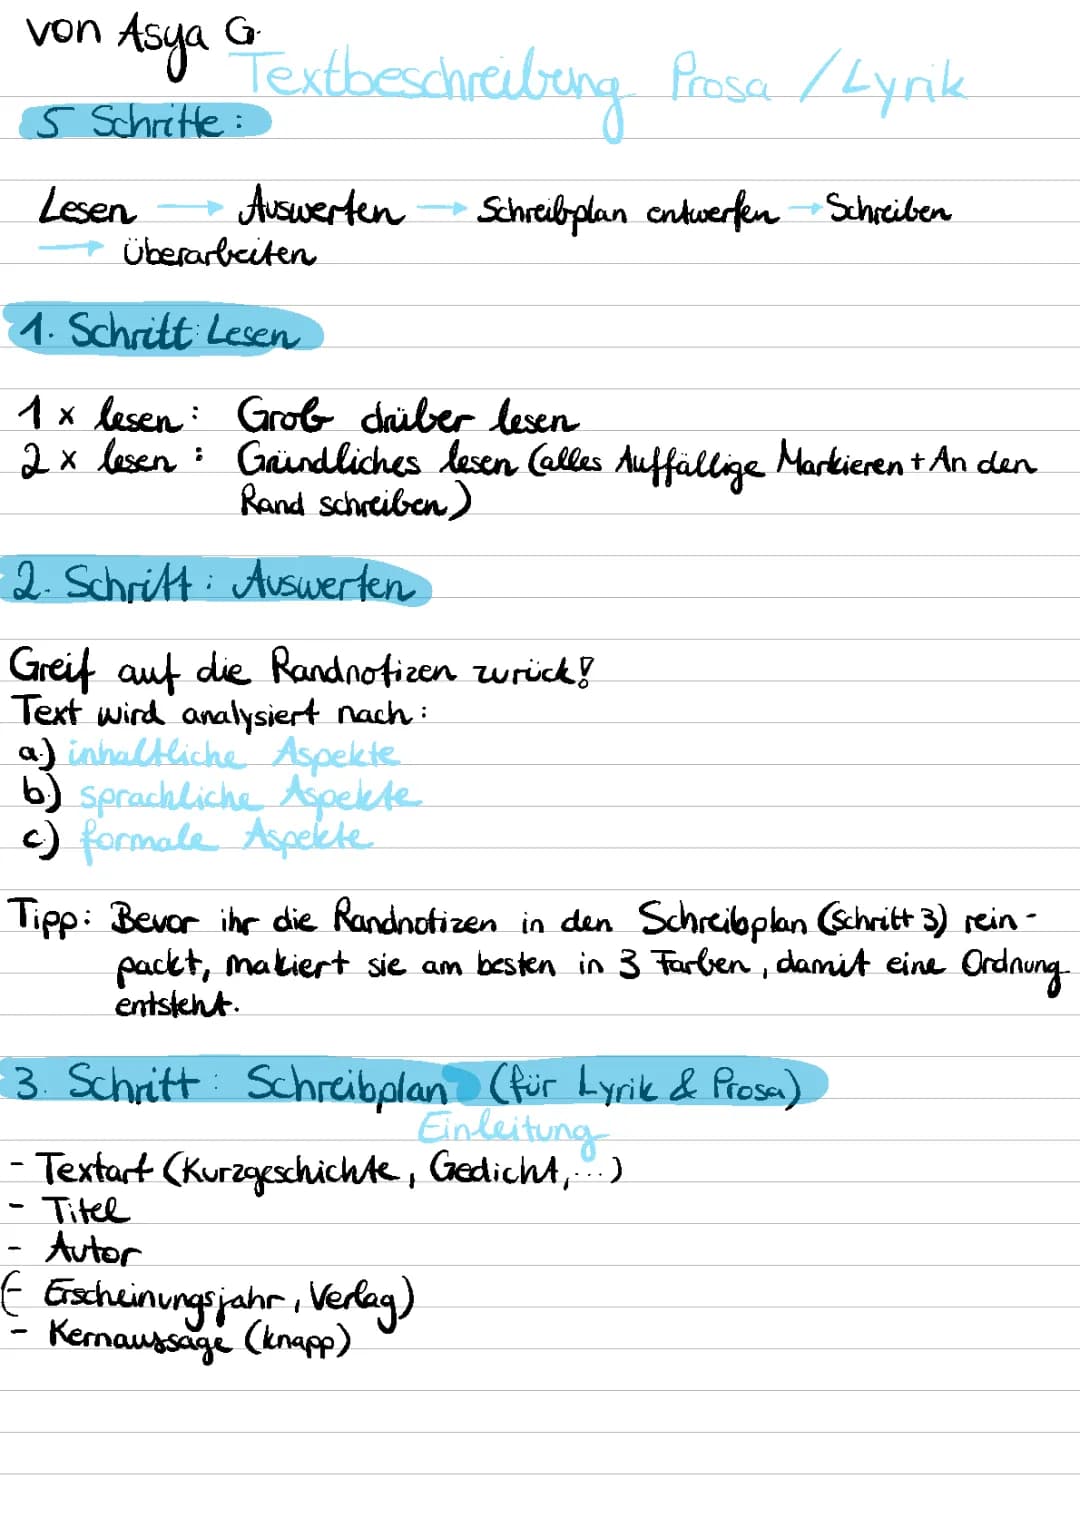 von Asya G.
Textbeschreibung Prosa / Lyrik
5 Schritte:
Lesen → Auswerten → Schreibplan entwerfen → Schreiben
→ Überarbeiten
1. Schritt: Lesen
1 x lesen: Grob drüber lesen
2 x lesen: Gründliches lesen (alles Auffällige Markieren + An den
Rand schreiben)
2. Schritt: Auswerten
Greif auf die Randnotizen zurück!
Text wird analysiert nach:
a.) inhaltliche Aspekte
b.) sprachliche Aspekte
c.) formale Aspekte
Tipp: Bevor ihr die Randnotizen in den Schreibplan (Schritt 3) rein-
packt, makiert sie am besten in 3 Farben, damit eine Ordnung
entsteht.
3. Schritt: Schreibplan (für Lyrik & Prosa)
Einleitung
- Textart (Kurzgeschichte, Gedicht, ...)
- Titel
- Autor
(- Erscheinungsjahr, Verlag)
- Kernaussage (knapp)